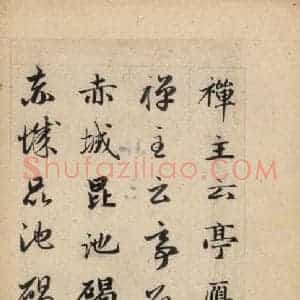 禪主云亭
禅主云亭
赤城昆池碣
赤城昆池碣
Shufaziliao.com